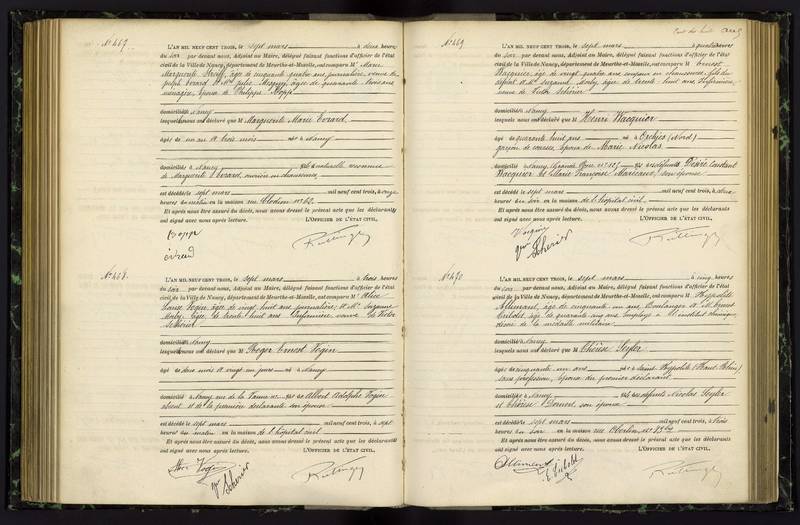 N° 467.
L'AN MIL NEUF CENT TROIS, le sept mars à deux heures
du soir par devant nous, Adjoint au Maire, délégué faisant fonctions d'officier de l'état
civil de la Ville de Nancy, département de Meurthe-et-Moselle, ont comparu M Marie
Marguerite âgée de cinquante quatre ans, journalière, veuve de
Evrard et Mme Julie âgée de quarante trois ans
ménagère, épouse de Philippe Bopp
domiciliés à Nancy
lesquelles nous ont déclaré que M Marguerite Marie Evrard
âgée de un an et trois mois née à Nancy
domiciliée à Nancy fille naturelle reconnue
de Marguerite Evrard, ouvrière en chaussures
est décédée le sept mars mil neuf cent trois, à onze
heures du matin en la maison rue Clodion n° 62.
Et après nous être assuré du décès, nous avons dressé le présent acte que les déclarants
ont signé avec nous après lecture. L'OFFICIER DE L'ÉTAT CIVIL,
Bopp
évrard
N° 468.
L'AN MIL NEUF CENT TROIS, le sept mars à trois heures
du soir par devant nous, Adjoint au Maire, délégué faisant fonctions d'officier de l'état
civil de la Ville de Nancy, département de Meurthe-et-Moselle, ont comparu M Alice
Vogin, âgée de vingt huit ans, journalière, et Me Suzanne
âgée de trente huit ans, infirmière, veuve de Victor
Schérier
domiciliées à Nancy
lesquelles nous ont déclaré que M Roger Ernest Vogin
âgé de deux mois et vingt un jours né à Nancy
domicilié à Nancy, rue de la fils de Albert Adolphe Vogin
absent et de la première déclarante son épouse
est décédé le sept mars mil neuf cent trois, à sept
heures du matin en la maison de l'hôpital civil
Et après nous être assuré du décès, nous avons dressé le présent acte que les déclarants
ont signé avec nous après lecture. L'OFFICIER DE L'ÉTAT CIVIL,
Vogin
Vve Schérier
N° 469
L'AN MIL NEUF CENT TROIS, le sept mars à quatre heures
du soir par devant nous, Adjoint au Maire, délégué faisant fonctions d'officier de l'état
civil de la Ville de Nancy, département de Meurthe-et-Moselle, ont comparu M Ernest
Wacquier, âgé de vingt quatre ans, coupeur en chaussures, fils du
défunt et Me Suzanne âgée de trente huit ans, infirmière,
veuve de Victor Schérier
domiciliés à Nancy
lesquels nous ont déclaré que M Henri Wacquier
âgé de quarante huit ans né à Orchies (Nord)
garçon de courses, époux de Marie Nicolas
domicilié à Nancy, Grande Rue n° fils des défunts Désiré Constant
Wacquier et Marie Françoise son épouse
est décédé le sept mars mil neuf cent trois, à deux
heures du soir en la maison de l'hôpital civil
Et après nous être assuré du décès, nous avons dressé le présent acte que les déclarants
ont signé avec nous après lecture. L'OFFICIER DE L'ÉTAT CIVIL,
Schérier
N° 470
L'AN MIL NEUF CENT TROIS, le sept mars à cinq heures
du soir par devant nous, Adjoint au Maire, délégué faisant fonctions d'officier de l'état
civil de la Ville de Nancy, département de Meurthe-et-Moselle, ont comparu M Hippolyte
âgé de cinquante un ans, boulanger et M Ernest
âgé de quarante cinq ans, employé à l'institut chimique,
décoré de la médaille militaire
domiciliés à Nancy
lesquels nous ont déclaré que M Thérèse Seyler
âgée de cinquante un ans née à Saint Hippolyte (Haut-Rhin)
sans profession, épouse du premier déclarant
domiciliée à Nancy fille des défunts Nicolas Seyler
et Thérèse son épouse
est décédée le sept mars mil neuf cent trois, à trois
heures du soir en la maison rue Oberlin n°
Et après nous être assuré du décès, nous avons dressé le présent acte que les déclarants
ont signé avec nous après lecture. L'OFFICIER DE L'ÉTAT CIVIL,